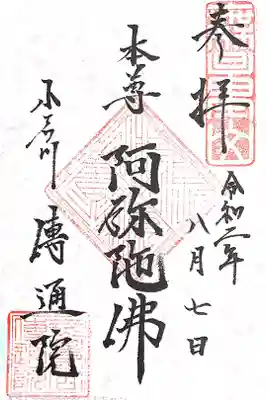 奉拝
令和二年
八月七日
本尊
阿弥陀佛
小石川
傳通院